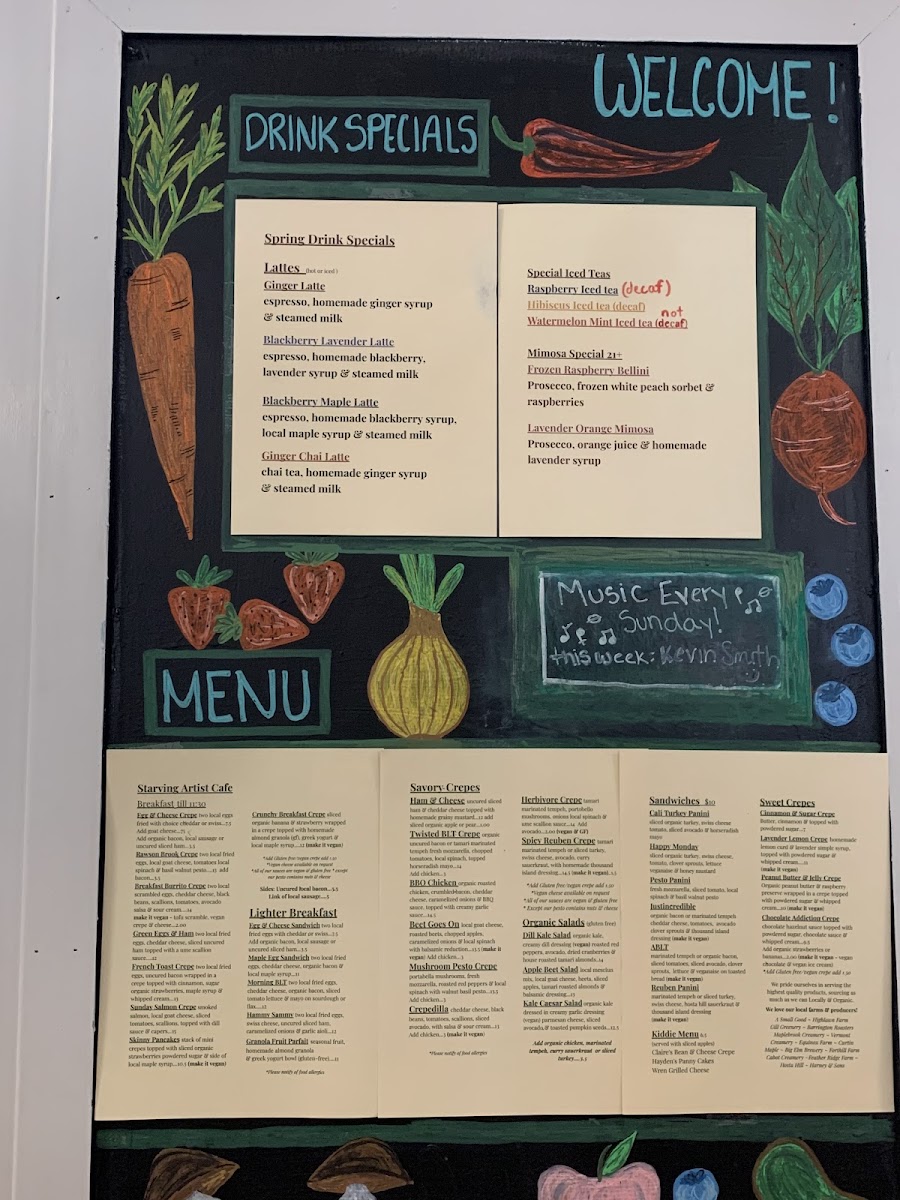 WELCOME!
DRINK SPECIALS
Spring Drink Specials
Lattes (hot or iced)
Ginger Latte
espresso, homemade ginger syrup
& steamed milk
Blackberry Lavender Latte
espresso, homemade blackberry,
lavender syrup & steamed milk
Blackberry Maple Latte
espresso, homemade blackberry syrup,
local maple syrup & steamed milk
Ginger Chai Latte
chai tea, homemade ginger syrup
& steamed milk
Special Iced Teas
Raspberry Iced tea (decaf)
Hibiscus Iced tea (decaf)
not
Watermelon Mint Iced tea (decaf)
Mimosa Special 21+
Frozen Raspberry Bellini
Prosecco, frozen white peach sorbet &
raspberries
Lavender Orange Mimosa
Prosecco, orange juice & homemade
lavender syrup
Music Every
Sunday!
this week: Kevin Smith
MENU
Starving Artist Cafe
Breakfast till 11:30
Egg & Cheese Crepe two local eggs
fried with choice cheddar or swiss...7.5
Add goat cheese...
add organic bacon, local sausage or
uncured sliced ham...
Rawson Brook Crepe two local fried
eggs, local goat cheese, tomatoes local
spinach & basil walnut pesto...13 add
bacon...
Breakfast Burrito Crepe two local
scrambled eggs, cheddar cheese, black
beans, scallions, tomatoes, avocado
salsa & sour cream...14
make it vegan - tofu scramble, vegan
crepe & cheese...2.00
Green Eggs & Ham two local fried
eggs, cheddar cheese, sliced uncured
ham crepe topped with a ume scallion
sauce...12
French Toast Crepe two local fried
eggs, uncured bacon wrapped in a
crepe topped with cinnamon, sugar
organic strawberries, maple syrup &
whipped cream...13
Sunday Salmon Crepe smoked
salmon, local goat cheese, sliced
tomatoes, scallions, topped with dill
sauce & capers...15
Skinny Pancakes stack of mini
crepes topped with sliced organic
strawberries powdered sugar & side of
local maple syrup...10.5 (make it vegan)
Crunchy Breakfast Crepe sliced
organic banana & strawberry wrapped
in a crepe topped with homemade
almond granola (gf), greek yogurt &
local maple syrup...11 (make it vegan)
*Add Gluten free/vegan crepe add 1.50
*Vegan cheese available on request
*All of our sauces are vegan & gluten free * except
our pesto contains nuts & cheese
Sides: Uncured local bacon...
Link of local sausage...5
Lighter Breakfast
Egg & Cheese Sandwich two local
fried eggs with cheddar or swiss...
Add organic bacon, local sausage or
uncured sliced ham...
Maple Egg Sandwich two local fried
eggs, cheddar cheese, organic bacon &
local maple syrup...11
Morning BLT two local fried eggs,
cheddar cheese, organic bacon, sliced
tomato lettuce & mayo on sourdough or
flax...12
Hammy Sammy two local fried eggs,
swiss cheese, uncured sliced ham,
caramelized onions & garlic aioli...11
Granola Fruit Parfait seasonal fruit,
homemade almond granola
& greek yogurt bowl (gluten-free)...11
*Please notify of food allergies
Savory Crepes
Ham & Cheese uncured sliced
ham & cheddar cheese topped with
homemade grainy mustard...11 add
sliced organic apple or pear...1.00
Twisted BLT Crepe organic
uncured bacon or tamari marinated
tempeh fresh mozzarella, chopped
tomatoes, local spinach, topped
horseradish mayo...14
Add chicken...3
BBQ Chicken organic roasted
chicken, crumbled bacon, cheddar
cheese, caramelized onions & BBQ
sauce, topped with creamy garlic
sauce...14.5
Beet Goes On local goat cheese,
roasted beets, chopped apples,
caramelized onions & local spinach
with balsamic reduction...13.5 (make it
vegan) Add chicken...3
Mushroom Pesto Crepe
portabella mushrooms, fresh
mozzarella, roasted red peppers & local
spinach with walnut basil pesto...13.5
Add chicken...3
Crepedilla cheddar cheese, black
beans, tomatoes, scallions, sliced
avocado, with salsa & sour cream...13
Add chicken...3 (make it vegan)
*Please notify of food allergies
Herbivore Crepe tamari
marinated tempeh, portobello
mushrooms, onions local spinach &
ume scallion sauce...14 Add
avocado...2.00 (vegan & GF)
Spicy Reuben Crepe tamari
marinated tempeh or sliced turkey,
swiss cheese, avocado, curry
sauerkraut, with homemade thousand
island dressing...14.5 (make it vegan)
*Add Gluten free/vegan crepe add 1.50
*Vegan cheese available on request
*All of our sauces are vegan & gluten free
* Except our pesto contains nuts & cheese
Organic Salads (gluten free)
Dill Kale Salad organic kale,
creamy dill dressing (vegan) roasted red
peppers, avocado, dried cranberries &
house roasted tamari almonds...14
Apple Beet Salad local mesclun
mix, local goat cheese, beets, sliced
apples, tamari roasted almonds &
balsamic dressing...13
Kale Caesar Salad organic kale
dressed in creamy garlic dressing
(vegan) parmesan cheese, sliced
avocado, & toasted pumpkin seeds...12.5
Add organic chicken, marinated
tempeh, curry sauerkraut or sliced
turkey...
Sandwiches $10
Cali Turkey Panini
sliced organic turkey, swiss cheese
tomato, sliced avocado & horseradish
mayo
Happy Monday
sliced organic turkey, swiss cheese,
tomato, clover sprouts, lettuce
veganaise & honey mustard
Pesto Panini
fresh mozzarella, sliced tomato, local
spinach & basil walnut pesto
Justincredible
organic bacon or marinated tempeh
cheddar cheese, tomatoes, avocado
clover sprouts & thousand island
dressing (make it vegan)
ABLT
marinated tempeh or organic bacon,
sliced tomatoes, sliced avocado, clover
sprouts, lettuce & veganaise on toasted
bread (make it vegan)
Reuben Panini
marinated tempeh or sliced turkey,
swiss cheese, hosta hill sauerkraut &
thousand island dressing
(make it vegan)
Kiddie Menu
(served with sliced apples)
Claire's Bean & Cheese Crepe
Hayden's Panny Cakes
Wren Grilled Cheese
Sweet Crepes
Cinnamon & Sugar Crepe
Butter, cinnamon & topped with
powdered sugar...7
Lavender Lemon Crepe homemade
lemon curd & lavender simple syrup,
topped with powdered sugar &
whipped cream...
(make it vegan)
Peanut Butter & Jelly Crepe
Organic peanut butter & raspberry
preserve wrapped in a crepe topped
with powdered sugar & whipped
cream...10 (make it vegan)
Chocolate Addiction Crepe
chocolate hazelnut sauce topped with
powdered sugar, chocolate sauce &
whipped cream...9.5
Add organic strawberries or
bananas...2.00 (make it vegan - vegan
chocolate & vegan ice cream)
*Add Gluten free/vegan crepe add 1.50
We pride ourselves in serving the
highest quality products, sourcing as
much as we can Locally & Organic.
We love our local farms & producers!
A Small Good ~ Highlawn Farm
Cill Greenery ~ Barrington Roasters
Maplebrook Creamery ~ Vermont
Creamery ~ Equinox Farm ~ Curtin
Maple ~ Big Elm Brewery ~ Forthill Farm
Cabot Creamery ~ Feather Ridge Farm ~
Hosta Hill ~ Harney & Sons